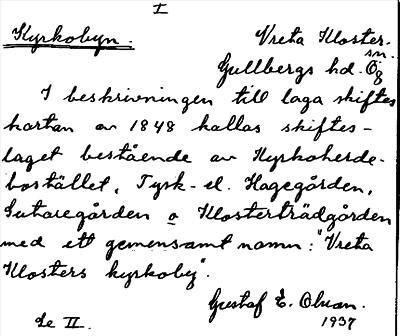 I
Kyrkobyn.
Vreta Kloster.
sn.
Gullbergs hd. Ög
I beskrivningen till laga skiftes
kartan av 1848 kallas skiftes-
laget bestående av Kyrkoherde-
bostället, Tysk- el. Hagegården,
Sutaregården o Klosterträdgården
med ett gemensamt namn: "Vreta
Klosters kyrkoby".
Gustaf E. Olsson.
1937
Se II.